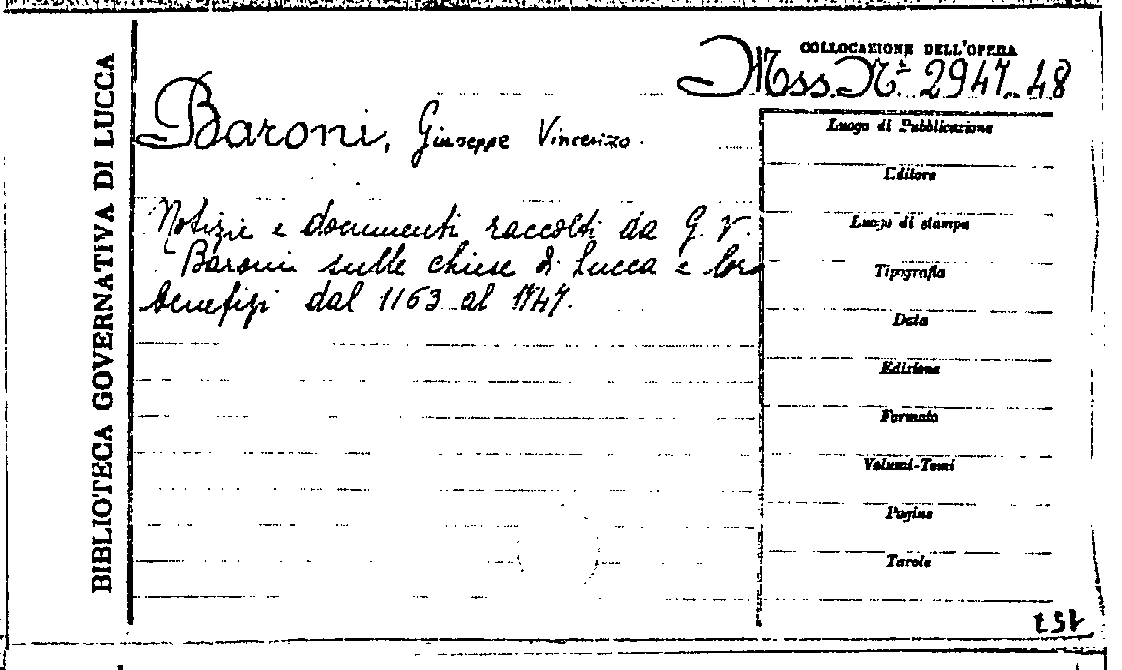 BIBLIOTECA GOVERNATIVA DI LUCCA
COLLOCAZIONE DELL'OPERA
Mss. N° 2947-48
Baroni, Giuseppe Vincenzo.
Notizie e documenti raccolti da G. V.
Baroni sulle chiese di Lucca e loro
benefizi dal 1163 al 1747.
Luogo di Pubblicazione
Editore
Luogo di stampa
Tipografia
Data
Edizione
Formato
Volumi-Tomi
Pagine
Tavole